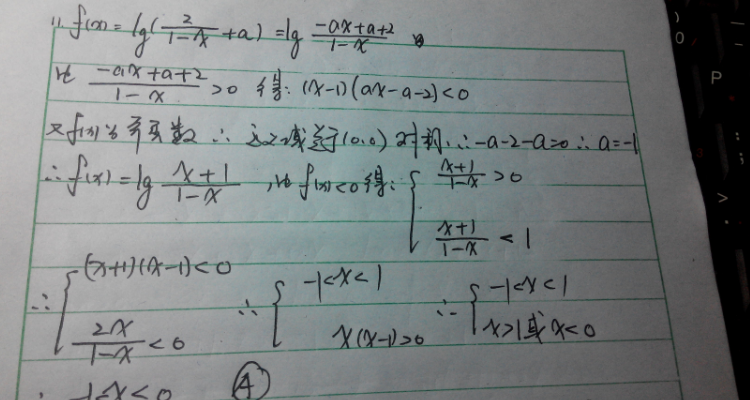 11. f(x)=lg(2/(1-x)+a)=lg (-ax+a+2)/(1-x)
比 (-ax+a+2)/(1-x)>0 得:(x-1)(ax-a-2)<0
又f(x)为奇函数∴定义域关于(0,0)对称∴-a-2-a=0∴a=-1
∴f(x)=lg (x+1)/(1-x),由f(x)<0得:{(x+1)/(1-x)>0
(x+1)/(1-x)<1
∴{(x+1)(x-1)<0 ∴{-1<x<1 ∴{-1<x<1
2x/(1-x)<0 x(x-1)>0 x>1或x<0
∴-1<x<0 A
P